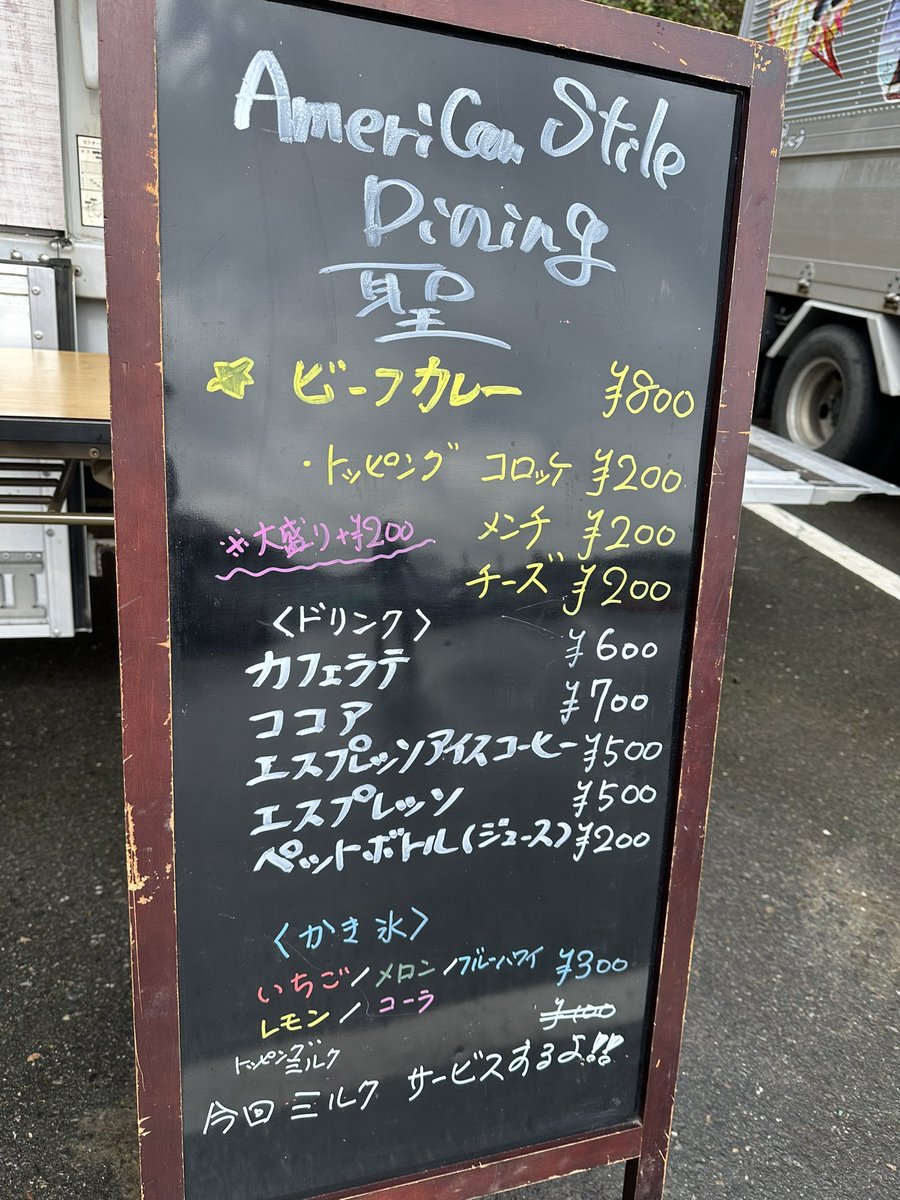 AmeriCan Stile
Dining
聖
ビーフカレー ¥800
・トッピング コロッケ ¥200
※大盛り+¥200 メンチ ¥200
チーズ ¥200
〈ドリンク〉
カフェラテ ¥600
ココア ¥700
エスプレッソアイスコーヒー ¥500
エスプレッソ ¥500
ペットボトル(ジュース) ¥200
〈かき氷〉
いちご/メロン/ブルーハワイ ¥300
レモン/コーラ
トッピング ミルク ¥100
今回ミルク サービスするよ!!